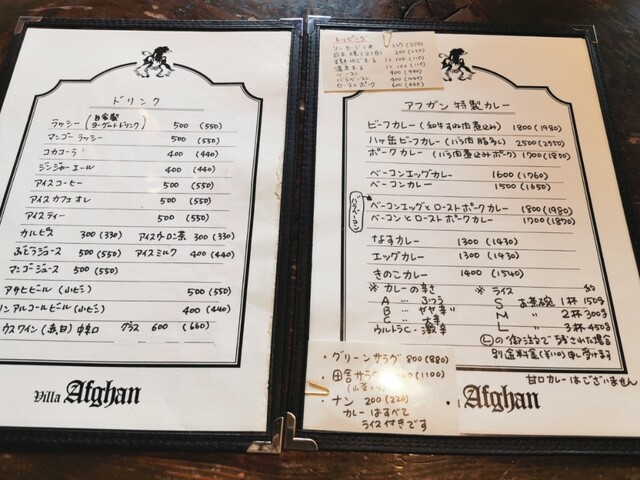 ドリンク
ラッシー (自家製ヨーグルトドリンク) 500 (550)
マンゴーラッシー 500 (550)
コカコーラ 400 (440)
ジンジャーエール 400 (440)
アイスコーヒー 500 (550)
アイスカフェオレ 500 (550)
アイスティー 500 (550)
カルピス 300 (330) アイスウーロン茶 300 (330)
ぶどうジュース 500 (550) アイスミルク 400 (440)
マンゴジュース 500 (550)
アサヒビール (小ビン) 500 (550)
ンアルコールビール (小ビン) 400 (440)
ウスワイン (赤、白) 中辛口 グラス 600 (660)
Villa Afghan
トッピング
200 (220)
100 (110)
100 (110)
ベーコン 400 (440)
400 (440)
ローストポーク 600
アフガン 特製カレー
ビーフカレー (和牛すね肉煮込み) 1800 (1980)
八ヶ岳ビーフカレー
ポークカレー (バラ肉煮込みポーク) 1700 (1870)
ベーコンエッグカレー 1600 (1760)
ベーコンカレー 1500 (1650)
バラベーコン
ベーコンエッグとローストポークカレー 1800 (1980)
ベーコンとローストポークカレー 1700 (1870)
なすカレー 1300 (1430)
エッグカレー 1300 (1430)
きのこカレー 1400 (1540)
※ カレーの辛さ
A … ふつう
B … やや辛い
C … 大辛
ウルトラC・激辛
※ ライス 約
S お茶碗 1杯 150g
M 〃 2杯 300g
L 〃 3杯 450g
Ⓛの御注文で残された場合
別途料金(¥110)申し受けます
甘口カレーはございません
・グリーンサラダ 800 (880)
・田舎サラダ (1100)
・ナン 200 (220)
カレーはすべて
ライス付きです
Afghan